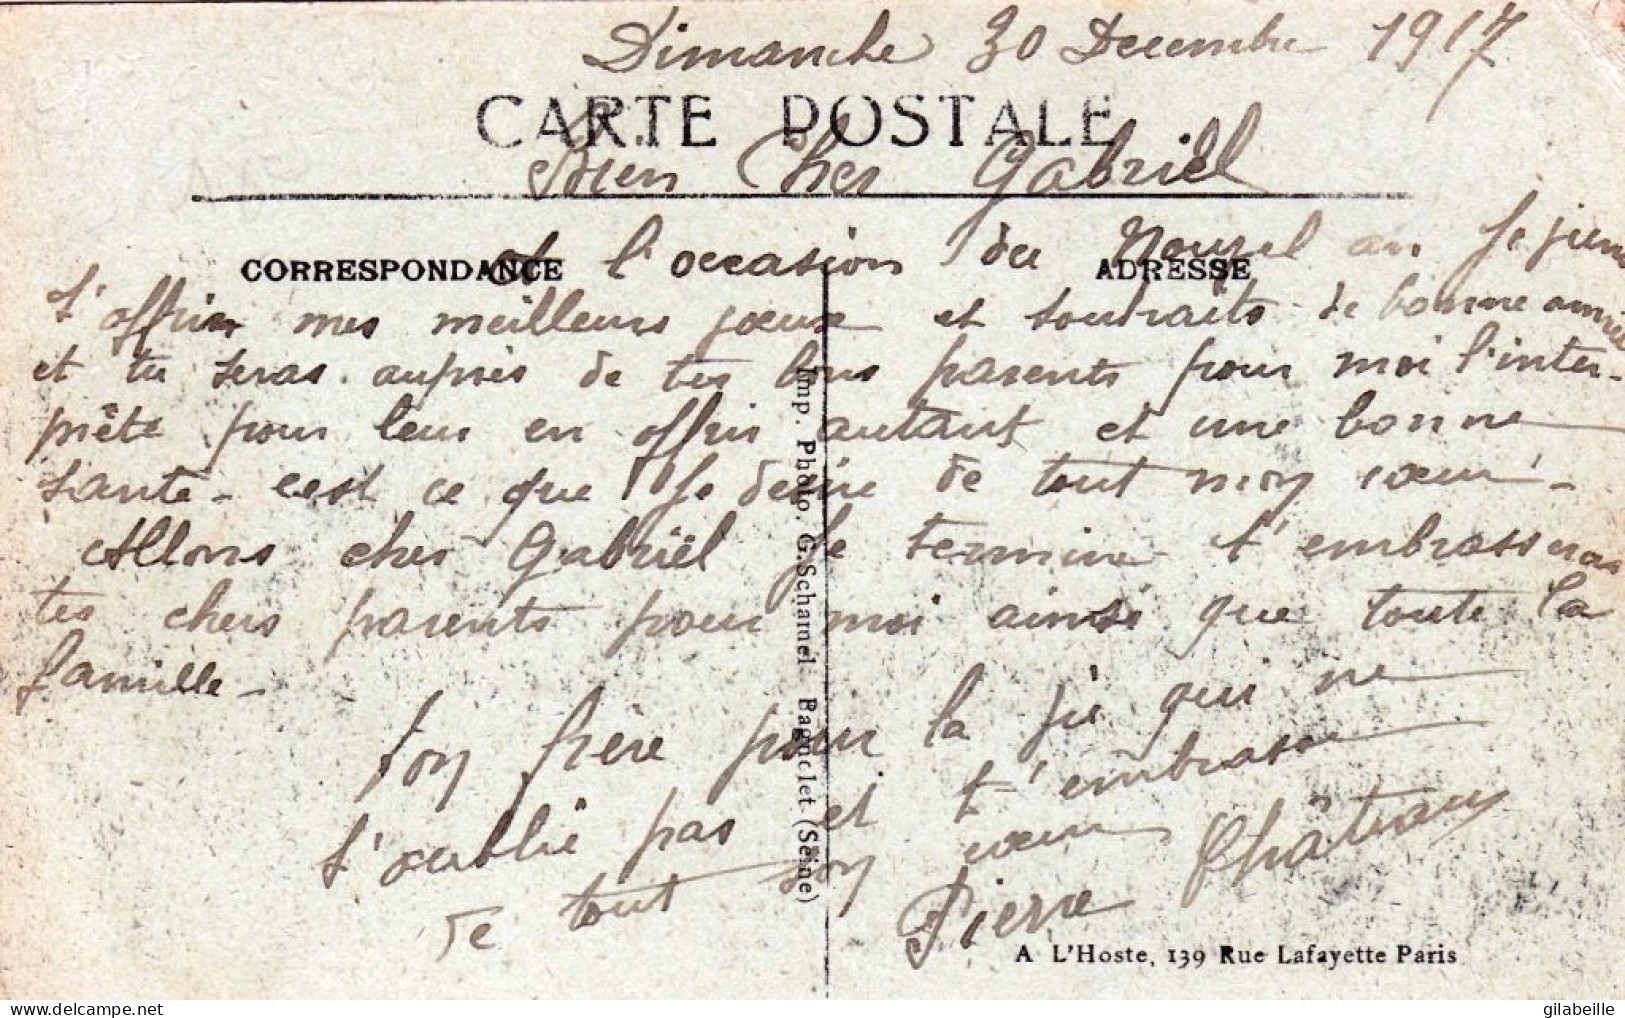 Dimanche 30 Decembre 1917
CARTE POSTALE
Bien Cher Gabriel
CORRESPONDANCE
ADRESSE
A l'occasion du Nouvel an Je viens
t'offrir mes meilleurs voeux et souhaits de bonne année
et tu seras auprès de tes bons parents pour moi l'inter-
prête pour leur en offrir autant et une bonne
santé - cest ce que Je desire de tout mon cœur -
Allons cher Gabriel Je termine t'embrasseras
tes chers parents pour moi ainsi que toute la
famille -
Ton frère pour la vie qui ne
t'oublie pas et t'embrasse
de tout son cœur
Pierre Château
Imp. Photo. G. Scharnel Bagnolet (Seine)
A L'Hoste, 139 Rue Lafayette Paris
gilabeille
www.delcampe.net